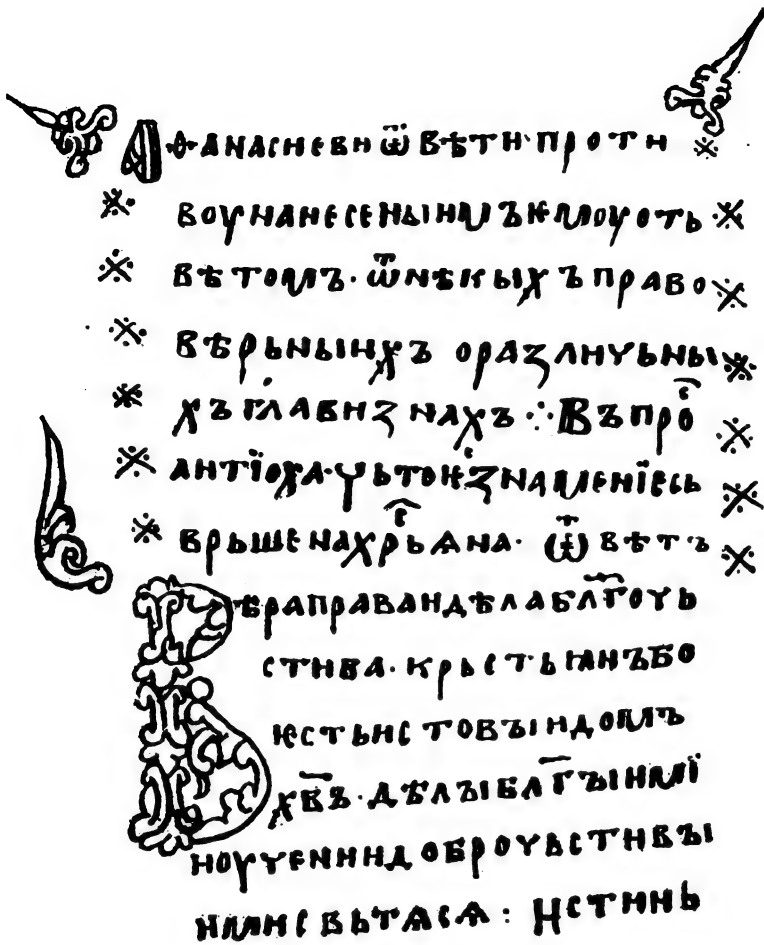 Аѳанасиеви ѿвѣти·проти
воу нанесеныимъ ѥмоу отъ
вѣтомъ· ѿ нѣкыхъ право
вѣрьныихъ о различьны
хъ главизнахъ ⁘ Въпроⷭ҇
антїоха· чьто ѥ знамениѥ съ
врьшена хрⷭ҇ьꙗна· ѿвѣтъ
Вѣра права и дѣла бл҃гочь
стива· крьстьꙗнъ бо
ѥсть истовъи домъ
хв҃ъ· дѣлъи бл҃гъими ї
ноученииꙗ доброчьстивъи
ими съвьтѧсѧ : Истинь